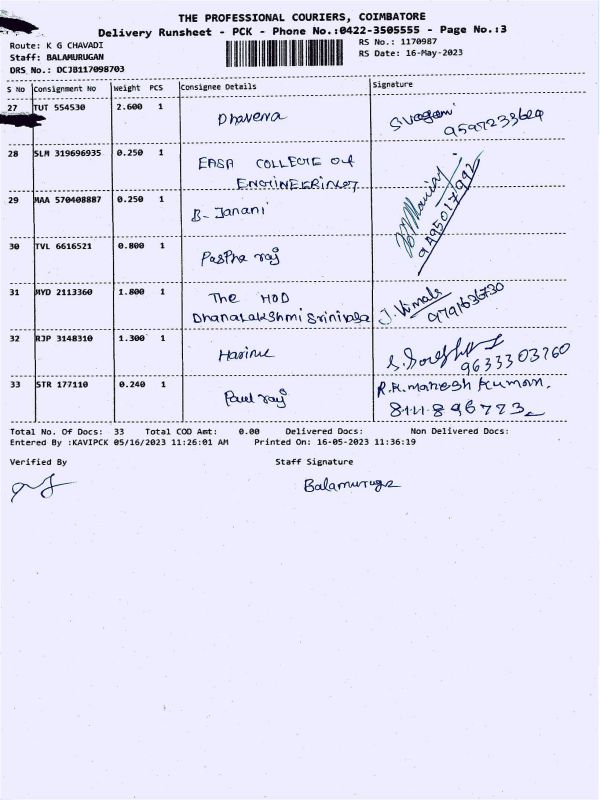 THE PROFESSIONAL COURIERS, COIMBATORE
Delivery Runsheet - PCK - Phone No.:0422-3505555 - Page No.:3
Route: K G CHAVADI
RS No.: 1170987
Staff: BALAMURUGAN
RS Date: 16-May-2023
DRS No.: DCJB117098703
S No Consignment No Weight PCS Consignee Details Signature
27 TUT 554530 2.600 1 Dhavena
28 SLM 319696935 0.250 1 EASA COLLEGE of
ENGINEERING
29 MAA 570408887 0.250 1 B-Janani
30 TVL 6616521 0.800 1 raj
31 MYD 2113360 1.800 1 The HOD J. Vimala
Dhanalakshmi Srinivasa 9791636730
32 RJP 3148310 1.300 1 Harine
9633303760
33 STR 177110 0.240 1 Paul raj R.R. Mahesh Kumar.
8111896723
Total No. Of Docs: 33 Total COD Amt: 0.00 Delivered Docs: Non Delivered Docs:
Entered By :KAVIPCK 05/16/2023 11:26:01 AM Printed On: 16-05-2023 11:36:19
Verified By Staff Signature
Balamuruga